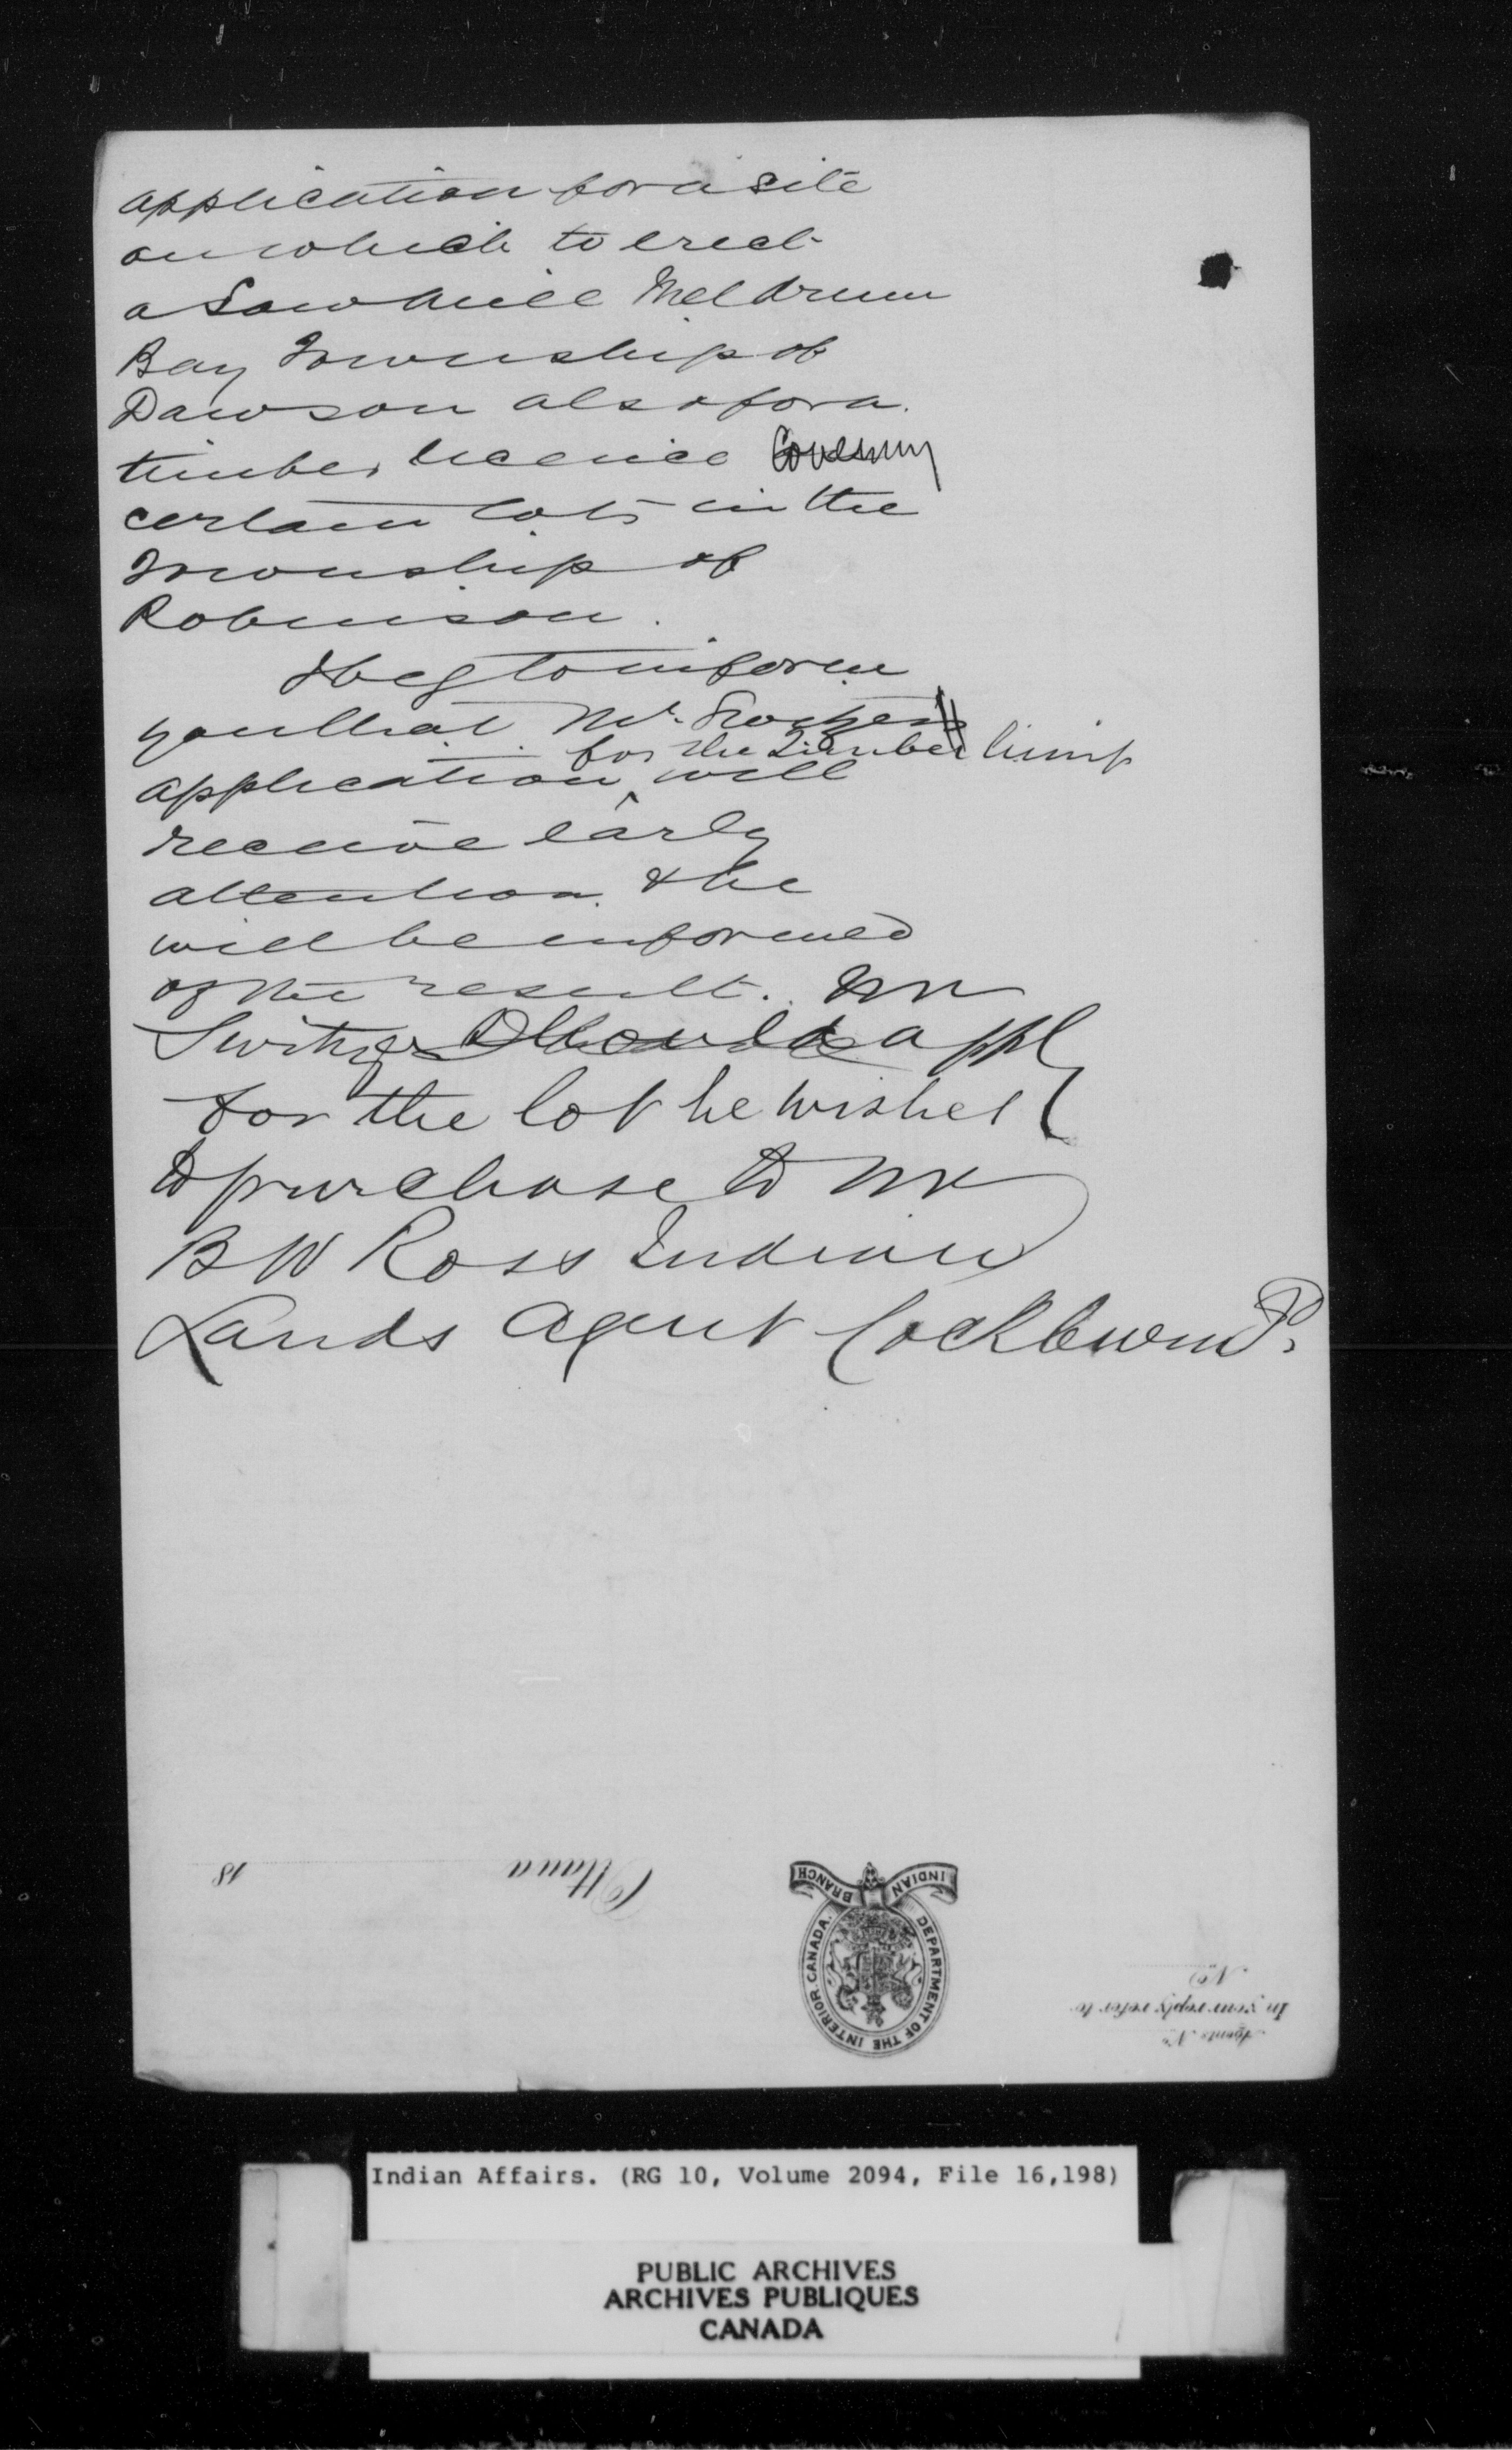 application for a site
on which to erect
a Saw Mill Meldrum
Bay Township of
Dawson also for a
timber licence Covering
certain lots in the
Township of
Robinson.
I beg to inform
you that Mr.
for the Timber limit
application will
receive early
attention & he
will be informed
of the result. Mr
Switzer should apply
for the lot he wishes
to purchase to Mr
B W Ross Indian
Lands Agent Cockburn
Ottawa 18
INDIAN BRANCH
DEPARTMENT OF THE INTERIOR. CANADA.
Agents No.
In your reply refer to
No.
Indian Affairs. (RG 10, Volume 2094, File 16,198)
PUBLIC ARCHIVES
ARCHIVES PUBLIQUES
CANADA